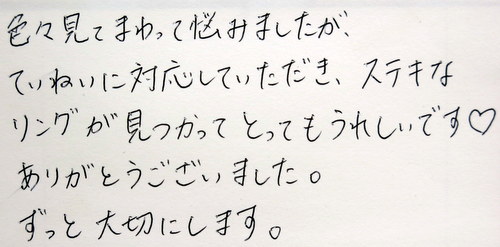 色々見てまわって悩みましたが、
ていねいに対応していただき、ステキな
リングが見つかってとってもうれしいです♡
ありがとうございました。
ずっと大切にします。